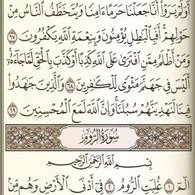 أَوَلَمْ يَرَوْا أَنَّا جَعَلْنَا حَرَمًا ءَامِنًا وَيُتَخَطَّفُ ٱلنَّاسُ
حَوْلِهِمْ أَفَبِٱلْبَٰطِلِ يُؤْمِنُونَ وَبِنِعْمَةِ ٱللَّهِ يَكْفُرُونَ ٦٧
وَمَنْ أَظْلَمُ مِمَّنِ ٱفْتَرَىٰ عَلَى ٱللَّهِ كَذِبًا أَوْ كَذَّبَ بِٱلْحَقِّ لَمَّا جَآءَهُۥٓ
أَلَيْسَ فِى جَهَنَّمَ مَثْوًى لِّلْكَٰفِرِينَ ٦٨ وَٱلَّذِينَ جَٰهَدُوا۟
فِينَا لَنَهْدِيَنَّهُمْ سُبُلَنَا وَإِنَّ ٱللَّهَ لَمَعَ ٱلْمُحْسِنِينَ ٦٩
سُورَةُ الرُّومِ
بِسْمِ ٱللَّهِ ٱلرَّحْمَٰنِ ٱلرَّحِيمِ
الٓمٓ ١ غُلِبَتِ ٱلرُّومُ ٢ فِىٓ أَدْنَى ٱلْأَرْضِ وَهُم مِّنۢ